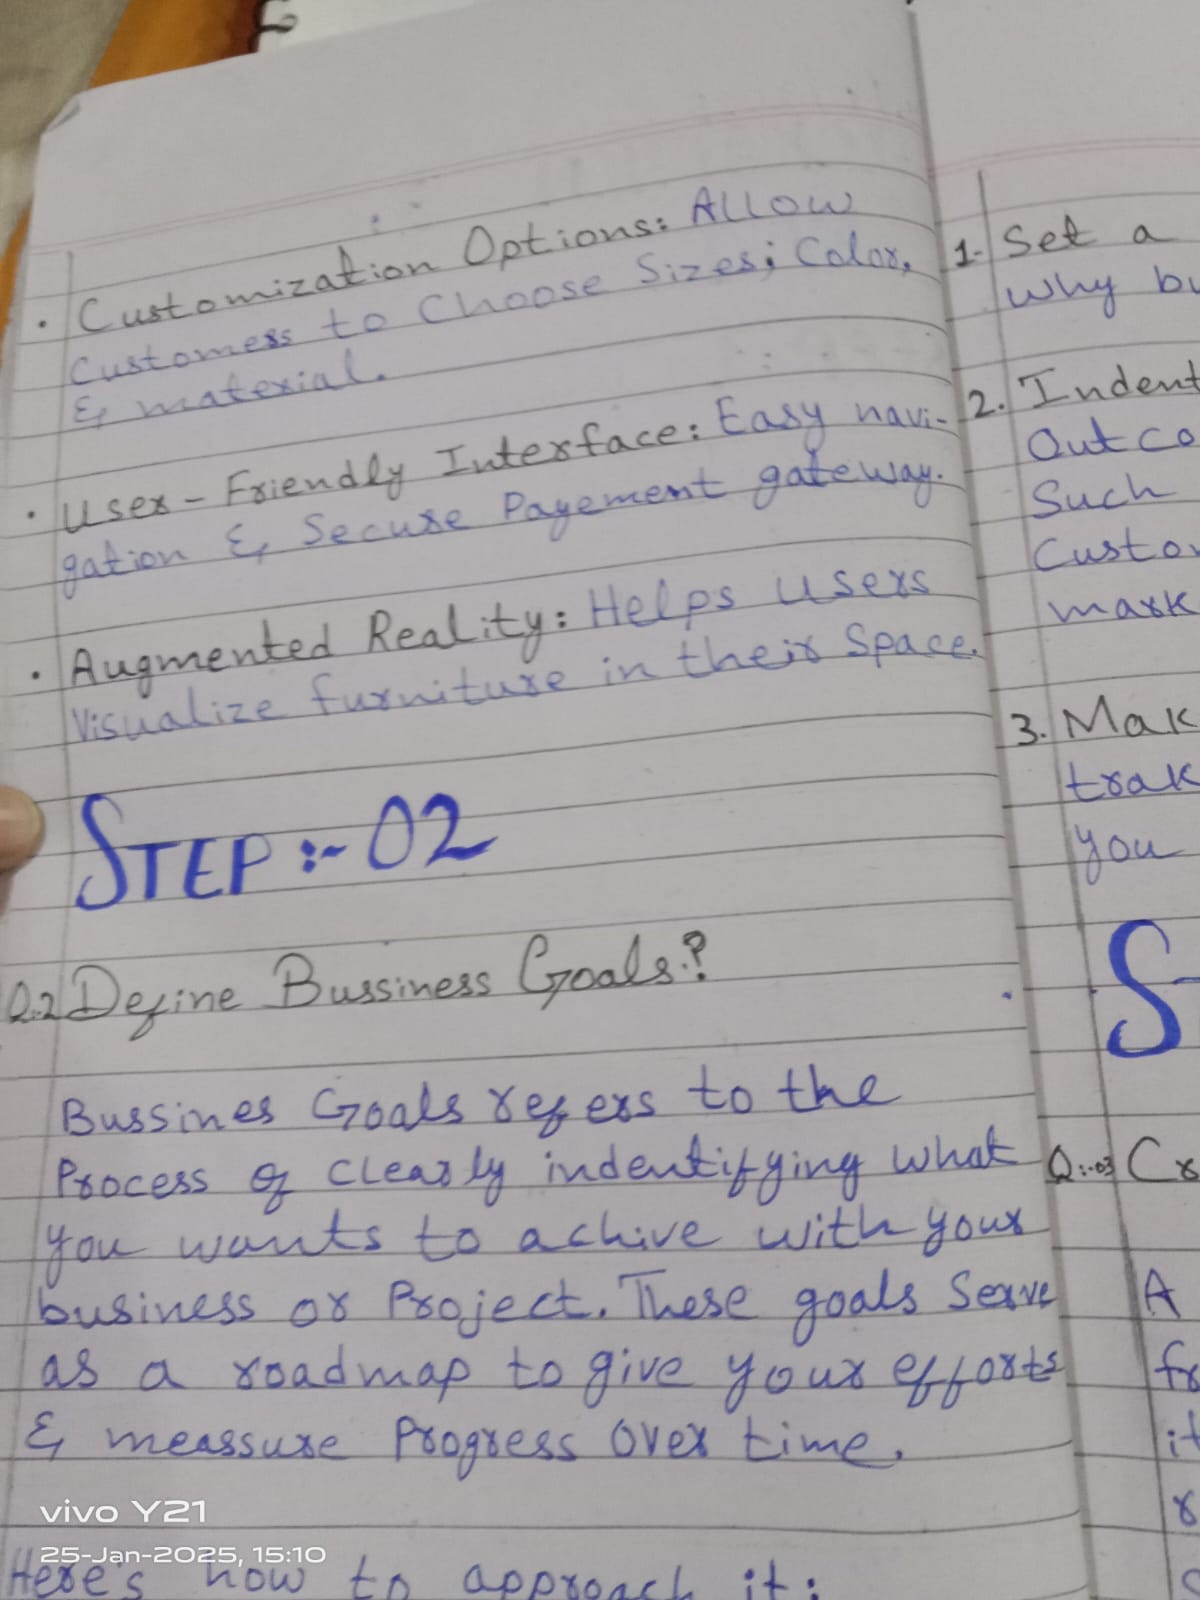 • Customization Options: Allow
Customess to Choose Sizes; Color,
& material.
• User-Friendly Interface: Easy navi-
gation & Secure Payement gateway.
• Augmented Reality: Helps users
Visualize furniture in their Space.
STEP :- 02
Q.2 Define Bussiness Goals.?
Bussines Goals refers to the
Process of clearly indentifying what
you wants to achive with your
business or Project. These goals Serve
as a roadmap to give your efforts
& meassure Progress Over time.
Here's how to approach it:
1. Set a
Why bu
2. Indent
Outco
Such
Custo
mark
3. Mak
trak
you
S
Q:-03 Cr
A
fr
it
r
vivo Y21
25-Jan-2025, 15:10